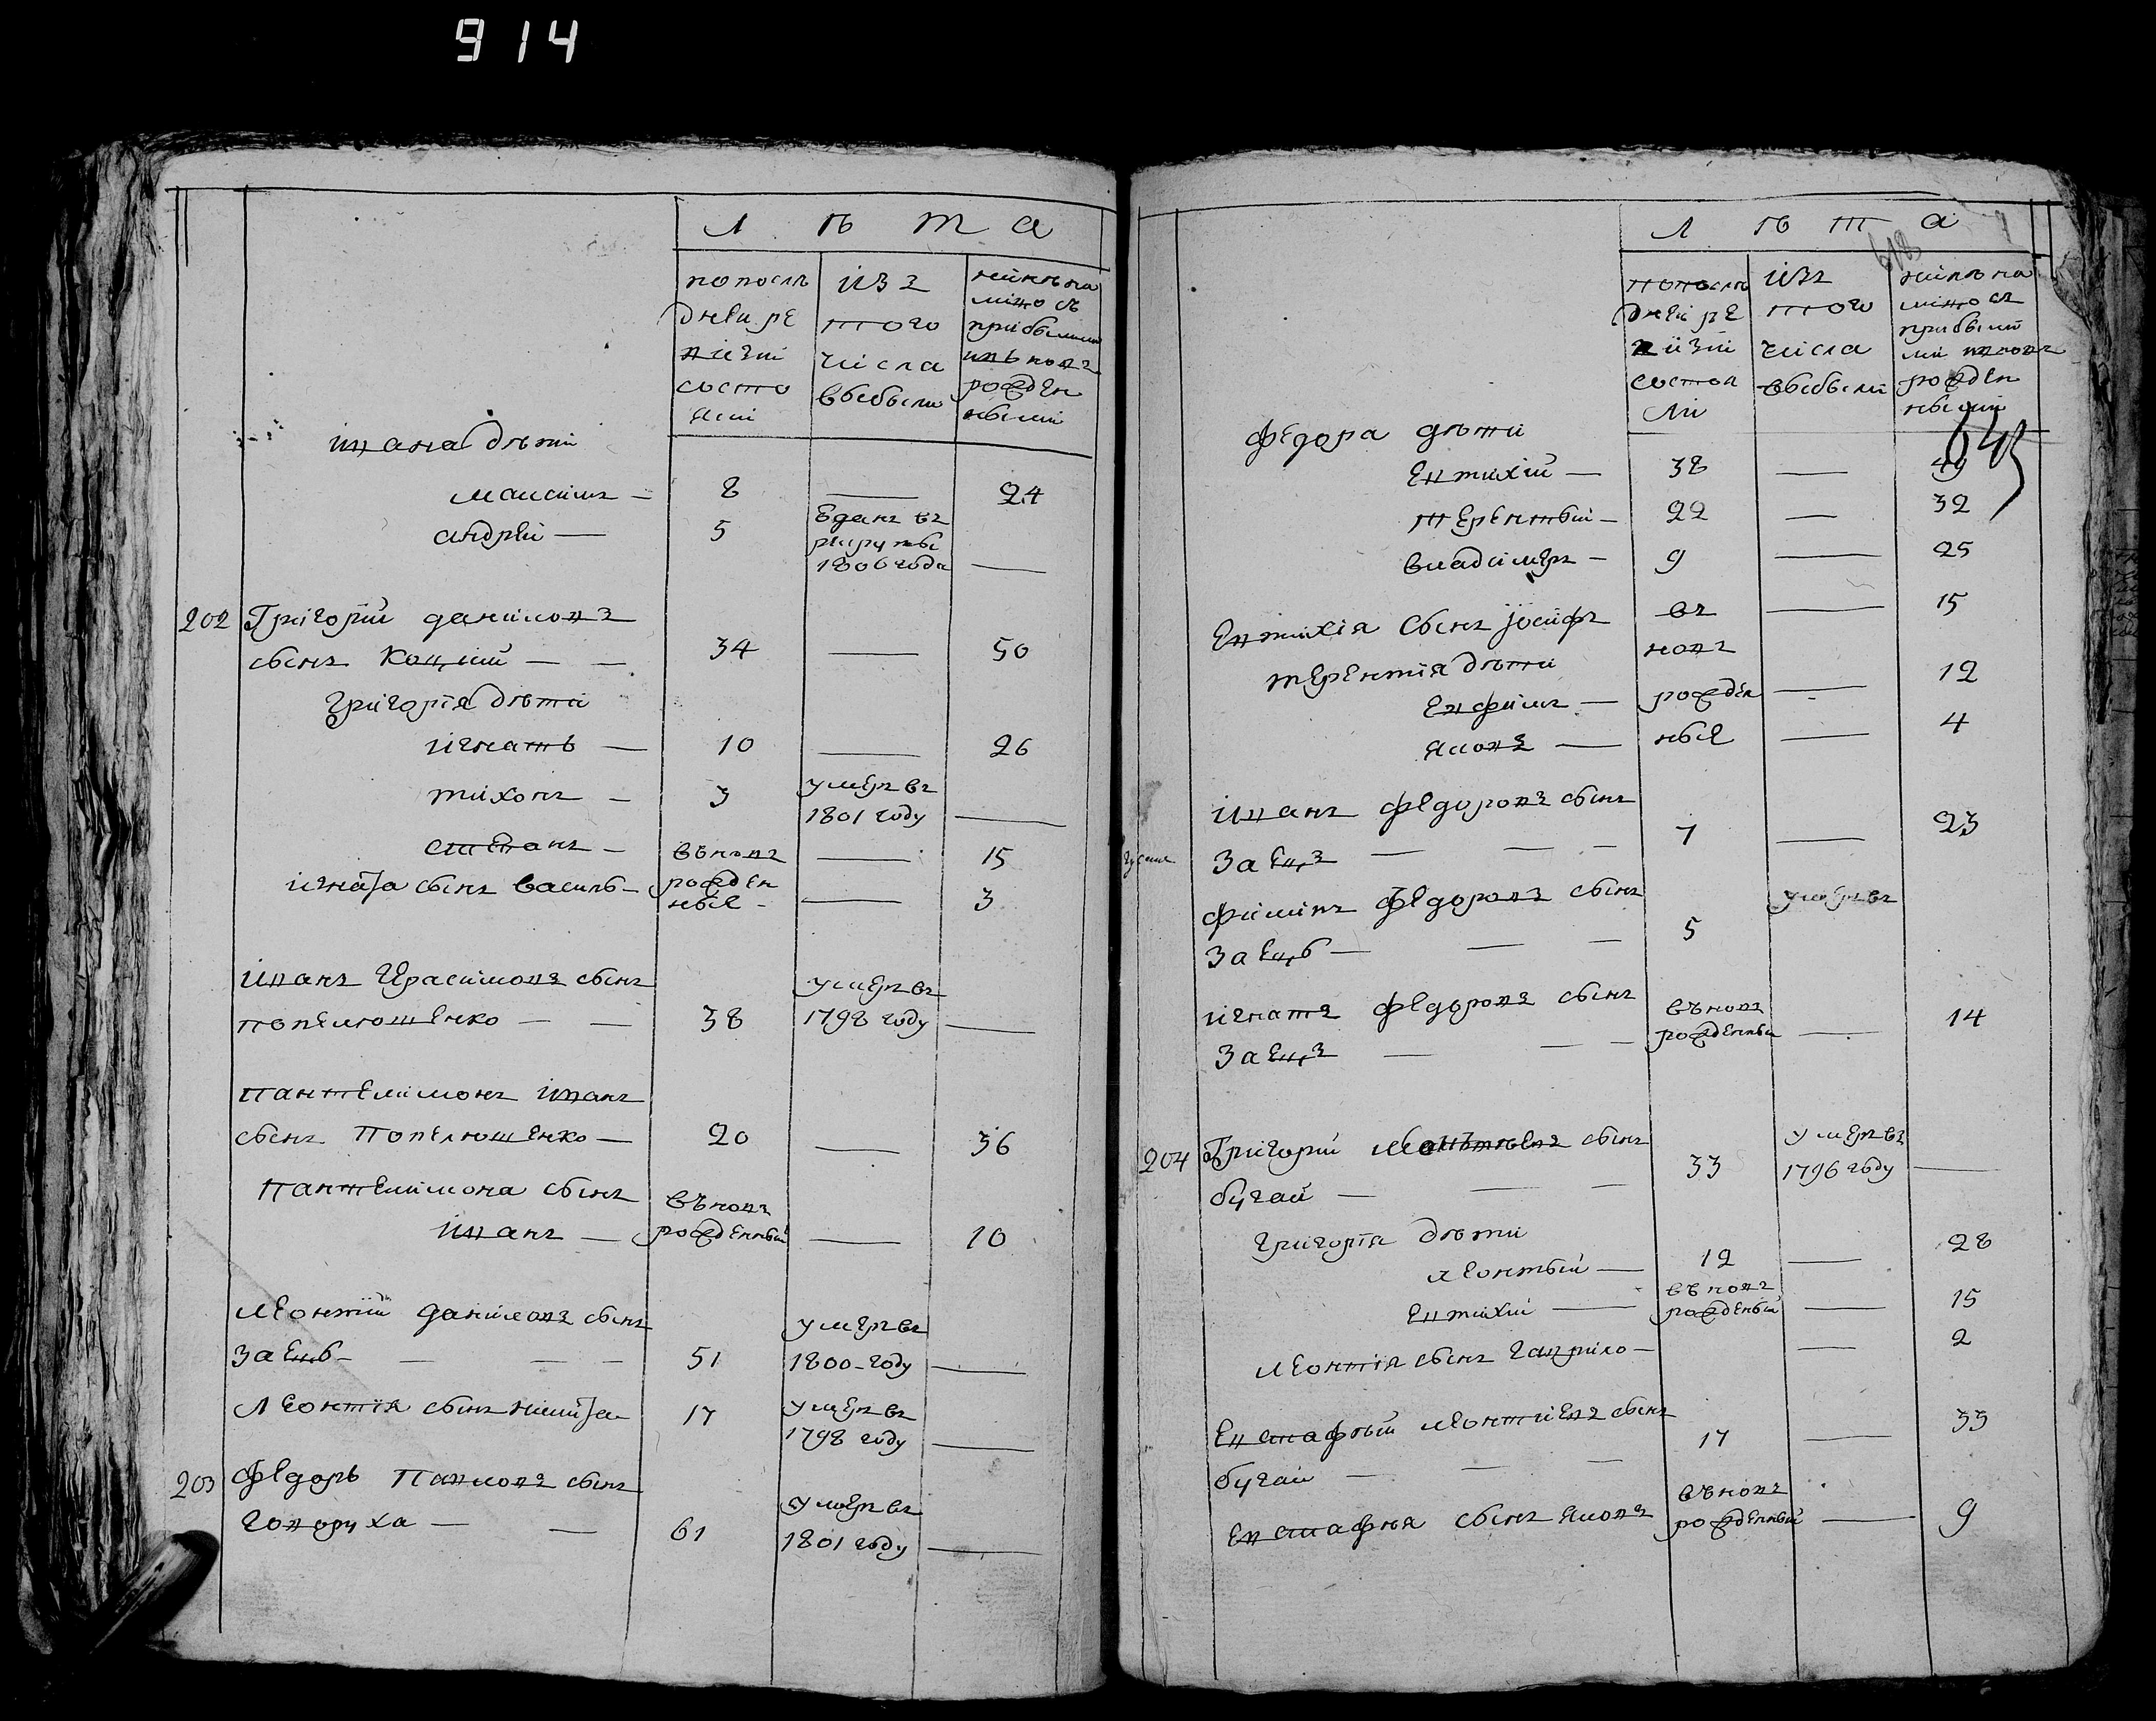 914
Л ѣ т а
по послѣ
дней ре
визіи
состо
яли
изъ
того
числа
выбыло
нынѣ на
лицо съ
прибылыми
и вновь
рожден
ными
Ивана дѣти
Максимъ — 8 — 24
Андрей — 5 вданъ въ
рекруты
1806 года —
202 Григорій Даниловъ
сынъ Коцкий — — 34 — 50
Григорія дѣти
Игнатъ — 10 — 26
Тихонъ — 3 умеръ въ
1801 году —
Степанъ — вновь — 15
Игната сынъ Василь — рожден
ные — — 3
Иванъ Герасимовъ сынъ
Попелюшенко — — 38 умеръ въ
1798 году —
Пантелимонъ Иванъ
сынъ Попелюшенко — 20 — 36
Пантелимона сынъ
Иванъ — вновь
рожденный — 10
Леонтій Даниловъ сынъ
Заецъ — — — 51 умеръ въ
1800 году —
Леонтія сынъ Никита 17 умеръ въ
1798 году —
203 Федоръ Павловъ сынъ
Говоруха — — 61 умеръ въ
1801 году —
Л ѣ т а
618
по послѣ
дней ре
визіи
состоя
ли
изъ
того
числа
выбыли
нынѣ на
лицо съ
прибылы
ми и вновь
рожден
ными
Федора дѣти
Евтихій — 38 — 49
Терентый — 22 — 32
Владимеръ — 9 — 25
Евтихія сынъ Іосифъ въ — 15
Терентія дѣти новъ
Евфимъ — рожден — 12
Яковъ — ные — 4
Иванъ Федоровъ сынъ
Заецъ — — — 7 — 23
Филипъ Федоровъ сынъ умеръ въ
Заецъ — — — 5
Игнатъ Федоровъ сынъ
Заецъ — — — вновь
рожденный — 14
204 Григорій Леонтьевъ сынъ
Бугай — — — 33 умеръ въ
1796 году —
Григорія дѣти
Леонтый — 12 — 28
Евтихій — вновь
рожденый — 15
Леонтія сынъ Гаврило — — 2
Евстафѣй Леонтиевъ сынъ
Бугай — — — 17 — 33
Евстафѣя сынъ Яковъ вновь
рожденный — 9